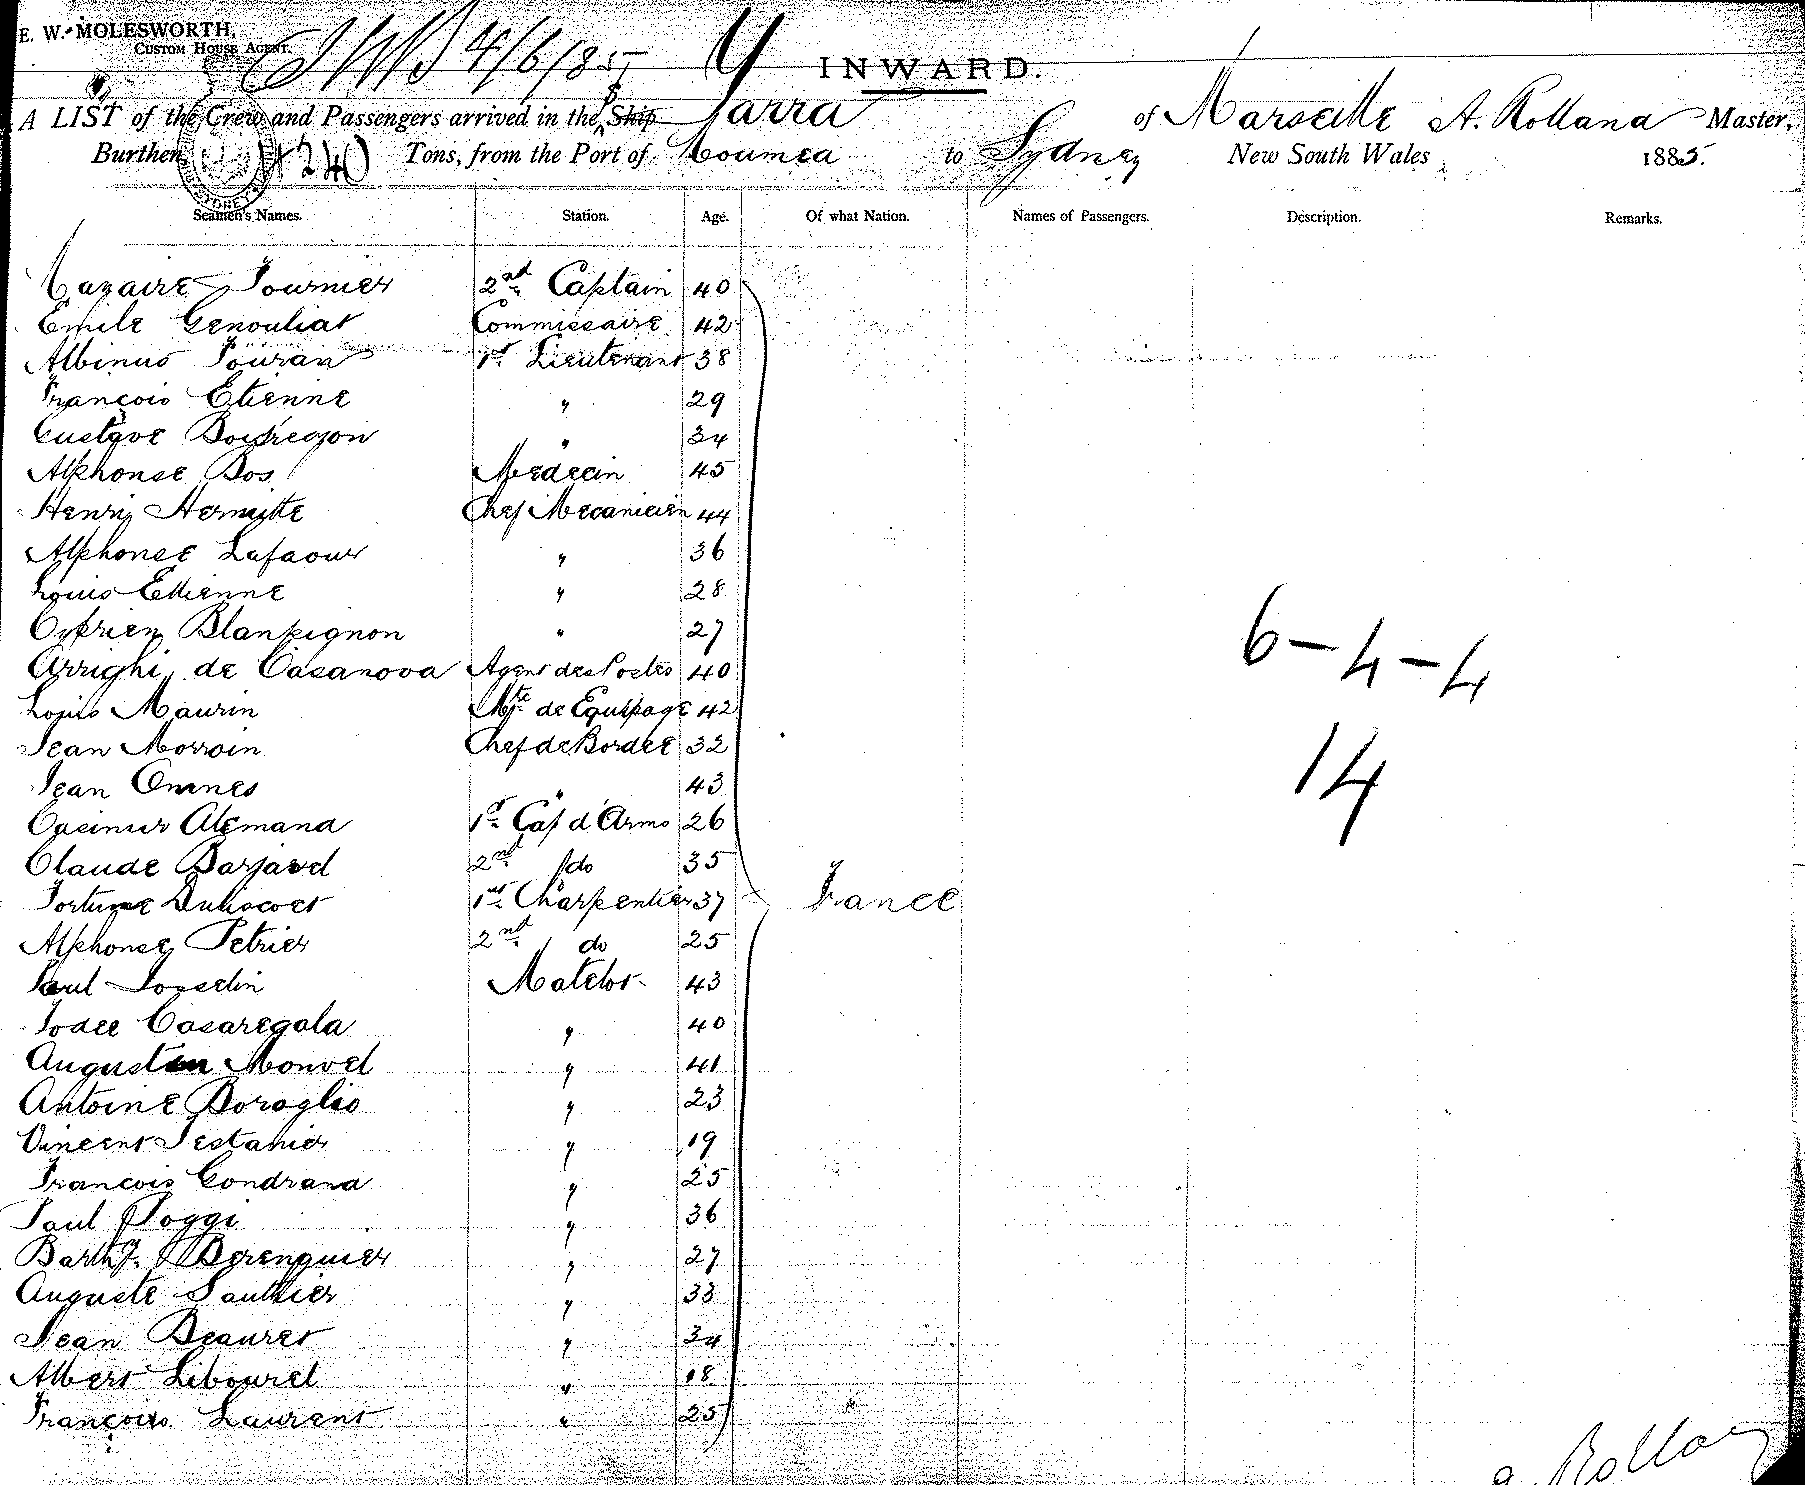 E. W. MOLESWORTH,
CUSTOM HOUSE AGENT.
4/6/85
INWARD.
A LIST of the Crew and Passengers arrived in the S Ship Yarra of Marseille A. Rolland Master,
Burthen 1240 Tons, from the Port of Noumea to Sydney New South Wales 1885.
Seamen's Names. Station. Age. Of what Nation. Names of Passengers. Description. Remarks.
Nazaire Fournier 2nd Captain 40
Emile Genouliat Commissaire 42
Albinus Pouran 1st Lieutenant 38
François Etienne " 29
Gustave " 34
Alphonse Bos Medecin 45
Henri Hermitte Chef Mecanicien 44
Alphonse Lafaour " 36
Louis Etienne " 28
Cyprien Blanpignon " 27
Arrighi de Casanova Agent des Postes 40
Louis Maurin Mte de Equipage 42
Jean Morvoin Chef de Bordee 32
Jean Omnes " 43
Casimir Alemand 1st Cap d'Arms 26
Claude Barjavel 2nd do 35
Fortune 1st Charpentier 37 France
Alphonse Petrier 2nd do 25
Paul Josselin Matelot 43
Casaregola " 40
Augustin Monvel " 41
Antoine Boroglio " 23
Vincent Testanier " 19
François Condrand " 25
Paul Poggi " 36
Barthy. Berenguier " 27
Auguste Gauthier " 33
Jean Beauret " 34
Albert Libourel " 18
François Laurent " 25
6-4-4
14
a. Rolland